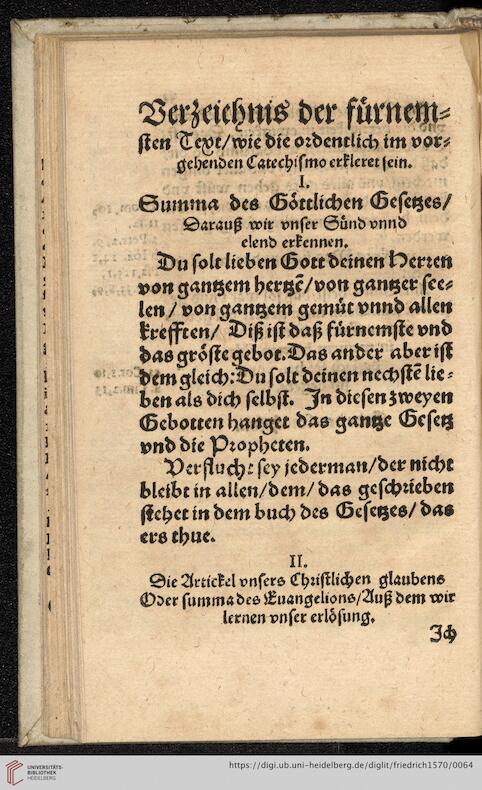 Verzeichnis der fürnem⸗
sten Text/wie die ordentlich im vor⸗
gehenden Catechismo erkleret sein.
I.
Summa des Göttlichen Gesetzes/
Darauß wir vnser Sünd vnnd
elend erkennen.
Du solt lieben Gott deinen Herren
von gantzem hertzē/von gantzer see⸗
len/ von gantzem gemüt vnnd allen
krefften/ Diß ist daß fürnemste vnd
das gröste gebot. Das ander aber ist
dem gleich: Du solt deinen nechstē lie⸗
ben als dich selbst. In diesen zweyen
Gebotten hanget das gantze Gesetz
vnd die Propheten.
Verflucht sey jederman/der nicht
bleibt in allen/dem/ das geschrieben
stehet in dem buch des Gesetzes/ das
ers thue.
II.
Die Artickel vnsers Christlichen glaubens
Oder summa des Euangelions/Auß dem wir
lernen vnser erlösung.
Ich
UNIVERSITÄTS-
BIBLIOTHEK
HEIDELBERG
https://digi.ub.uni-heidelberg.de/diglit/friedrich1570/0064